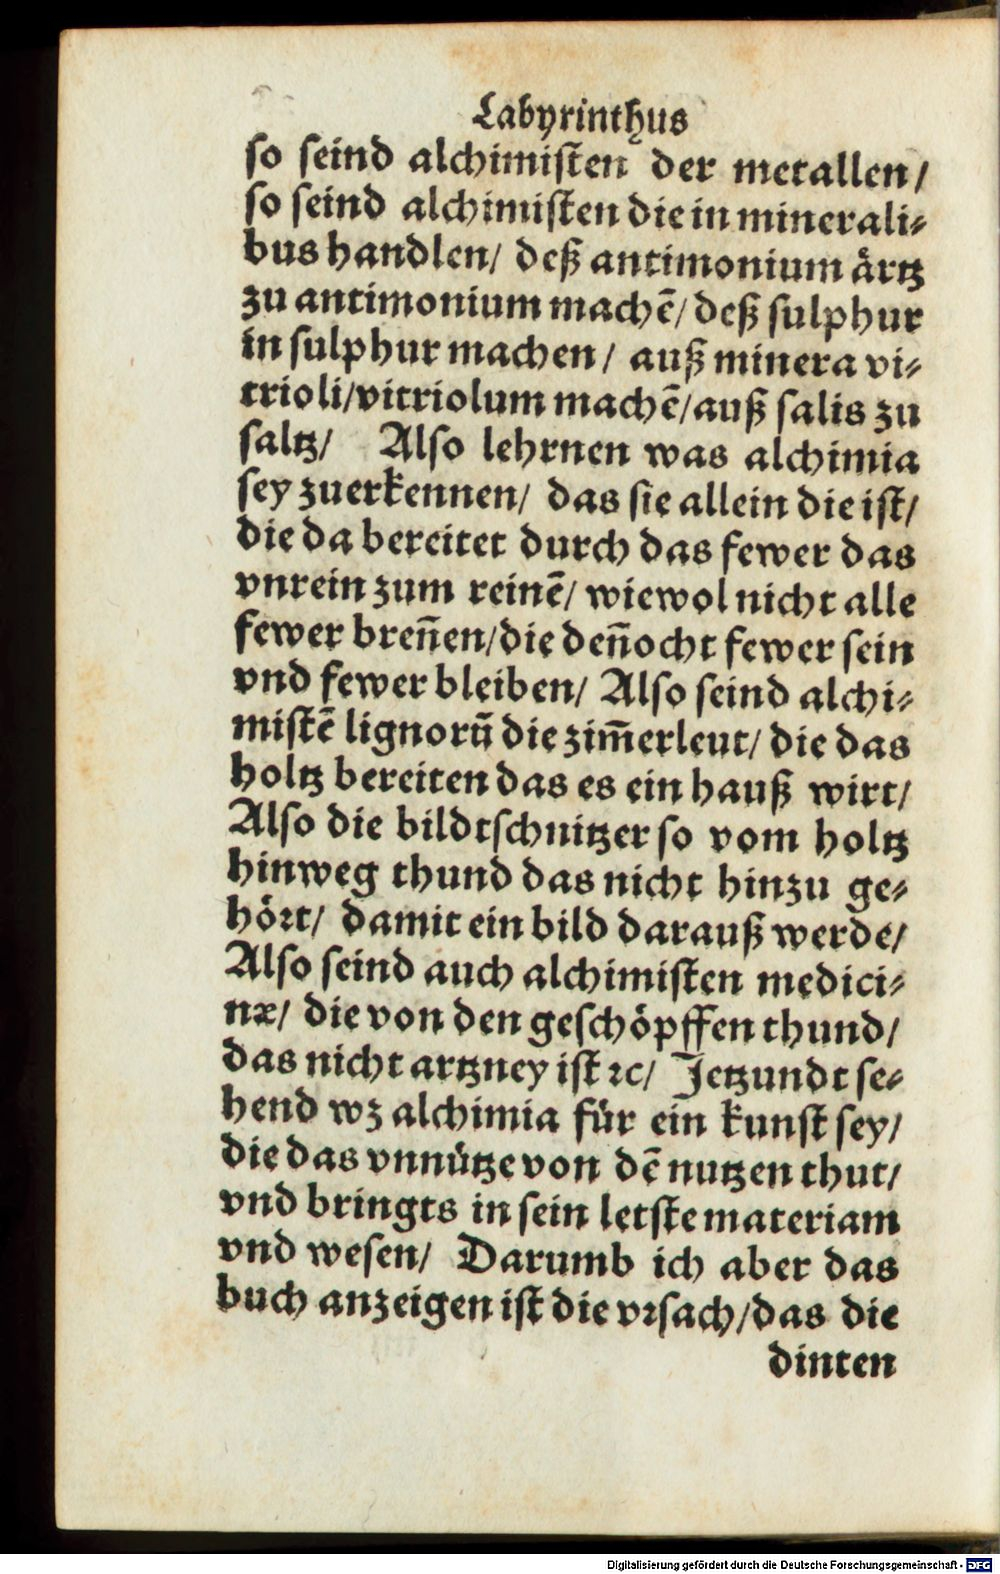 Labyrinthus
so seind alchimisten der metallen/
so seind alchimisten die in minerali⸗
bus handlen/ deß antimonium ärtz
zu antimonium machē/ deß sulphur
in sulphur machen/ auß minera vi⸗
trioli/vitriolum machē/auß salis zu
saltz/ Also lehrnen was alchimia
sey zuerkennen/ das sie allein die ist/
die da bereitet durch das fewer das
vnrein zum reinē/ wiewol nicht alle
fewer breñen/die deñocht fewer sein
vnd fewer bleiben/ Also seind alchi⸗
mistē lignorū die zim̄erleut/ die das
holtz bereiten das es ein hauß wirt/
Also die bildtschnitzer so vom holtz
hinweg thund das nicht hinzu ge⸗
hört/ damit ein bild darauß werde/
Also seind auch alchimisten medici⸗
næ/ die von den geschöpffen thund/
das nicht artzney ist ꝛc/ Jetzundt se⸗
hend wz alchimia für ein kunst sey/
die das vnnütze von dē nutzen thut/
vnd bringts in sein letste materiam
vnd wesen/ Darumb ich aber das
buch anzeigen ist die vrsach/das die
dinten
Digitalisierung gefördert durch die Deutsche Forschungsgemeinschaft - DFG